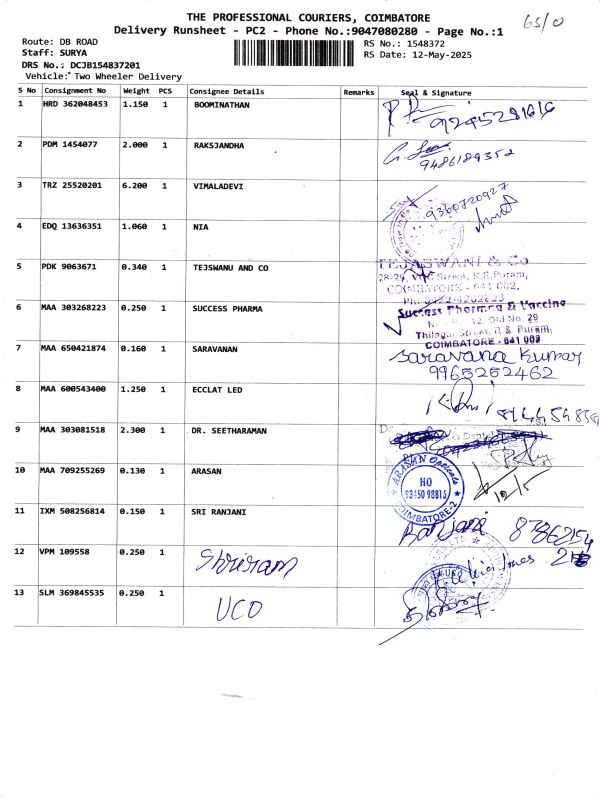 THE PROFESSIONAL COURIERS, COIMBATORE
65/0
Delivery Runsheet - PC2 - Phone No.:9047080280 - Page No.:1
Route: DB ROAD
RS No.: 1548372
Staff: SURYA
RS Date: 12-May-2025
DRS No.: DCJB154837201
Vehicle: Two Wheeler Delivery
S No Consignment No Weight PCS Consignee Details Remarks Seal & Signature
1 HRD 362048453 1.150 1 BOOMINATHAN
9245281616
2 PDM 1454077 2.000 1 RAKSJANDHA
9486189352
3 TRZ 25520201 6.200 1 VIMALADEVI
9360720927
4 EDQ 13636351 1.060 1 NIA
5 PDK 9063671 0.340 1 TEJSWANU AND CO
TEJASWANI & Co
Street, R.S.Puram,
COIMBATORE - 641 002.
6 MAA 303268223 0.250 1 SUCCESS PHARMA
Success Pharma & Vaccine
12, Old No. 29
Street, R.S. Puram,
COIMBATORE - 641 002
7 MAA 650421874 0.160 1 SARAVANAN
Saravana Kumar
9965252462
8 MAA 600543400 1.250 1 ECCLAT LED
9 MAA 303081518 2.300 1 DR. SEETHARAMAN
10 MAA 709255269 0.130 1 ARASAN
ARASAN Opticals
HO
93450 98816
COIMBATORE-2
12/5
11 IXM 508256814 0.150 1 SRI RANJANI
Ranjani
12 VPM 109558 0.250 1 Shriram
13 SLM 369845535 0.250 1 UCO